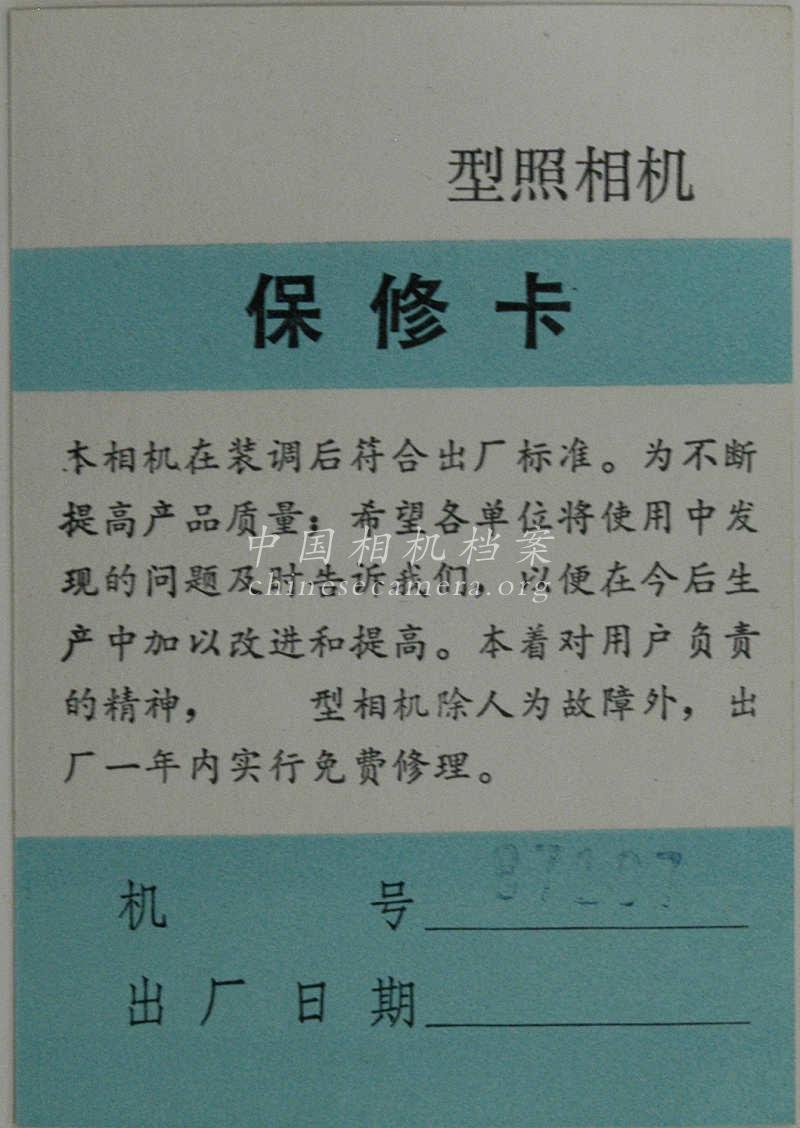 型照相机
保修卡
本相机在装调后符合出厂标准。为不断
提高产品质量；希望各单位将使用中发
现的问题及时告诉我们，以便在今后生
产中加以改进和提高。本着对用户负责
的精神，　　型相机除人为故障外，出
厂一年内实行免费修理。
中国相机档案
chinesecamera.org
机　　号
出厂日期